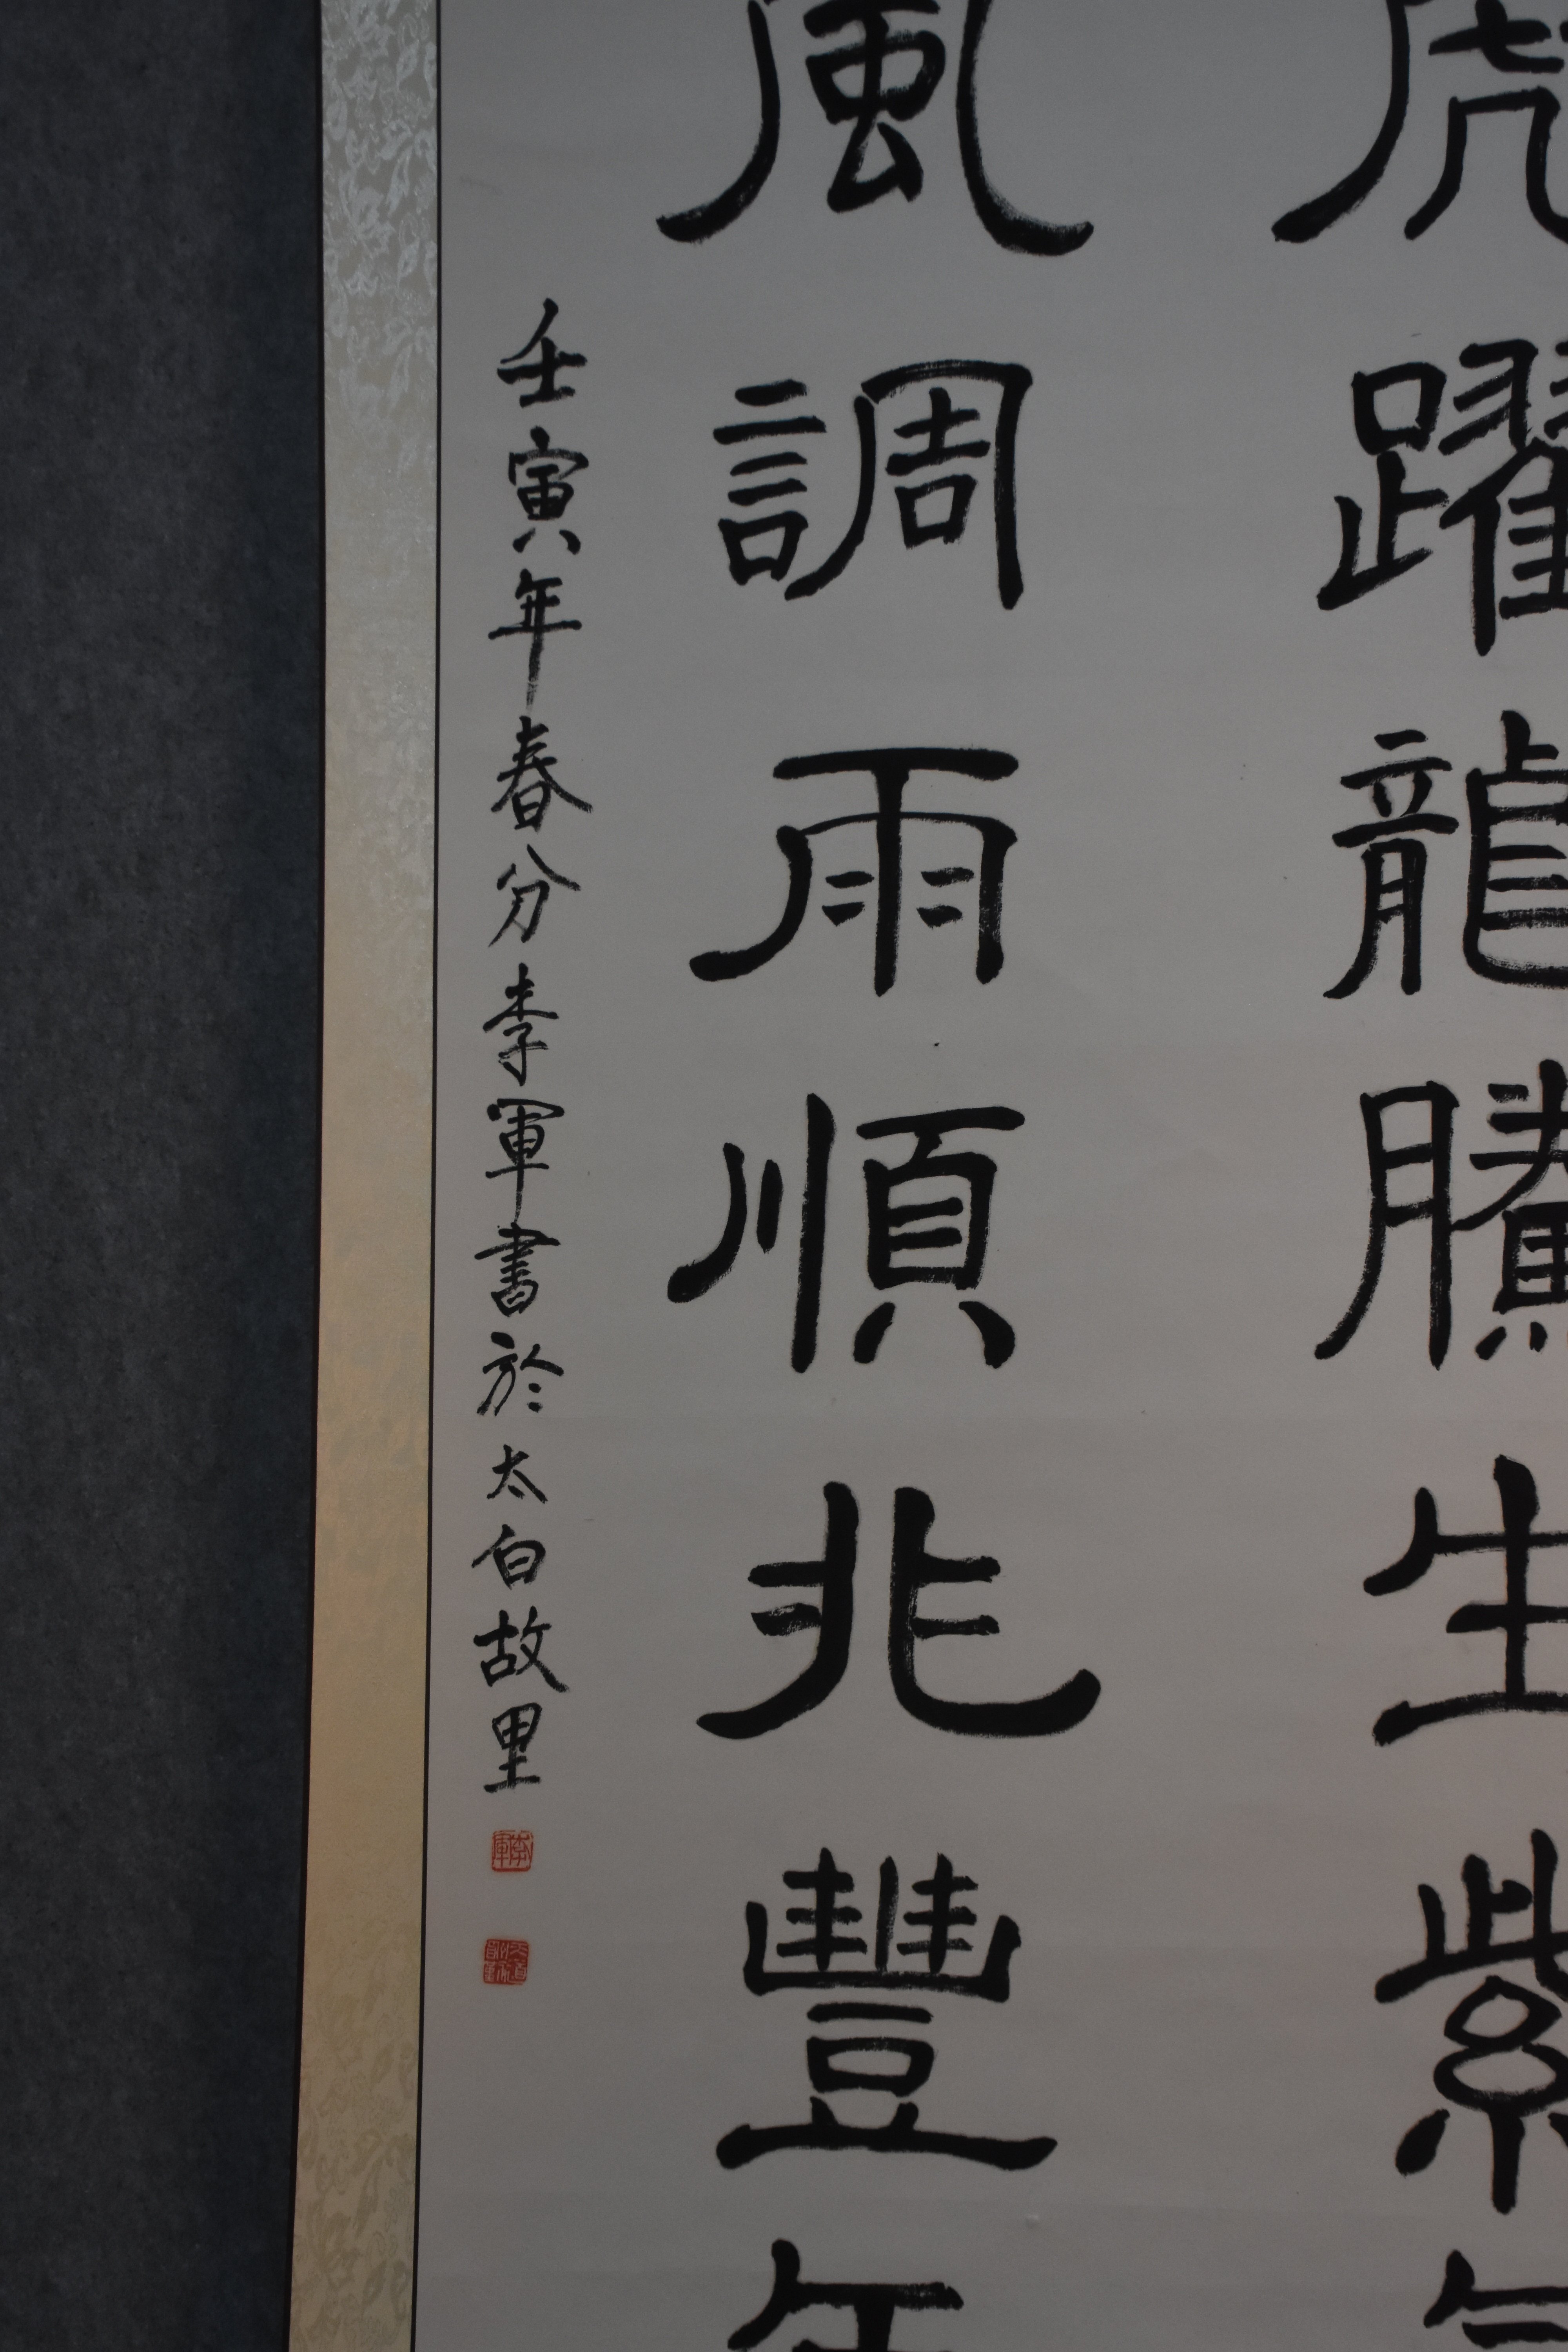 虎躍龍騰生紫氣
風調雨順兆豐年
壬寅年春分李軍書於太白故里
李軍